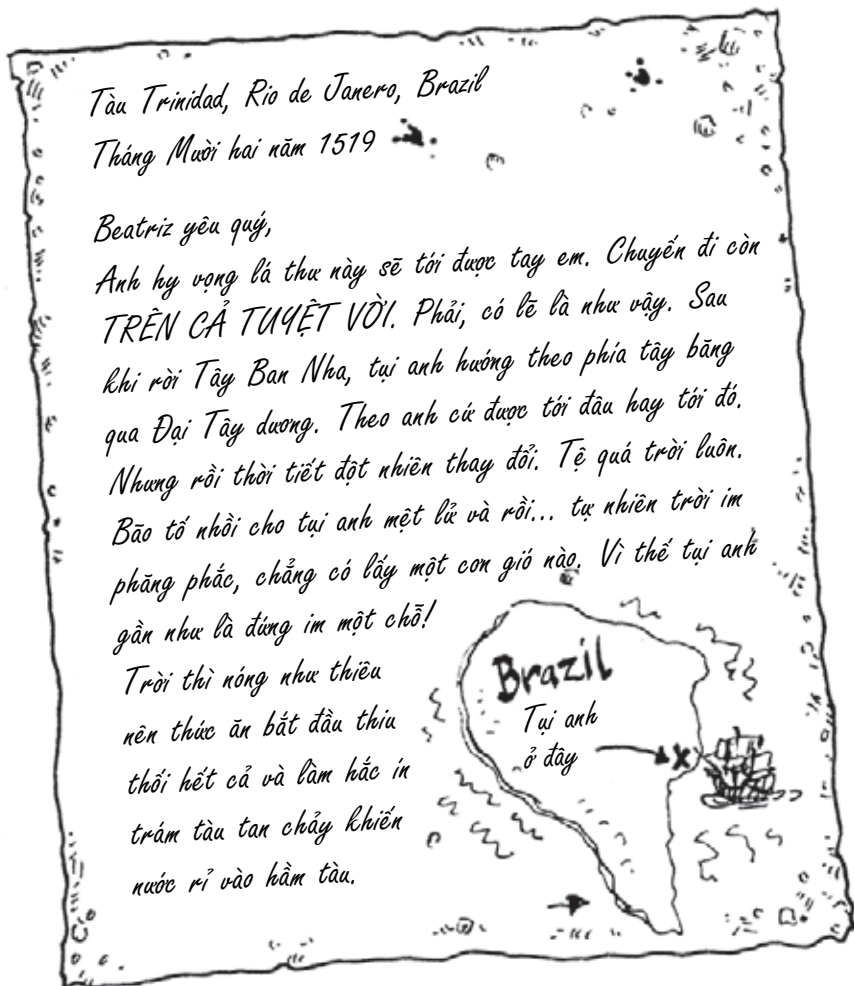 Tàu Trinidad, Rio de Janero, Brazil
Tháng Mười hai năm 1519
Beatriz yêu quý,
Anh hy vọng lá thư này sẽ tới được tay em. Chuyến đi còn
TRÊN CẢ TUYỆT VỜI. Phải, có lẽ là như vậy. Sau
khi rời Tây Ban Nha, tụi anh hướng theo phía tây băng
qua Đại Tây dương. Theo anh cứ được tới đâu hay tới đó.
Nhưng rồi thời tiết đột nhiên thay đổi. Tệ quá trời luôn.
Bão tố nhồi cho tụi anh mệt lử và rồi... tự nhiên trời im
phăng phắc, chẳng có lấy một cơn gió nào. Vì thế tụi anh
gần như là đứng im một chỗ!
Trời thì nóng như thiêu
nên thức ăn bắt đầu thiu
thối hết cả và làm hắc ín
trám tàu tan chảy khiến
nước rỉ vào hầm tàu.
Brazil
Tụi anh
ở đây